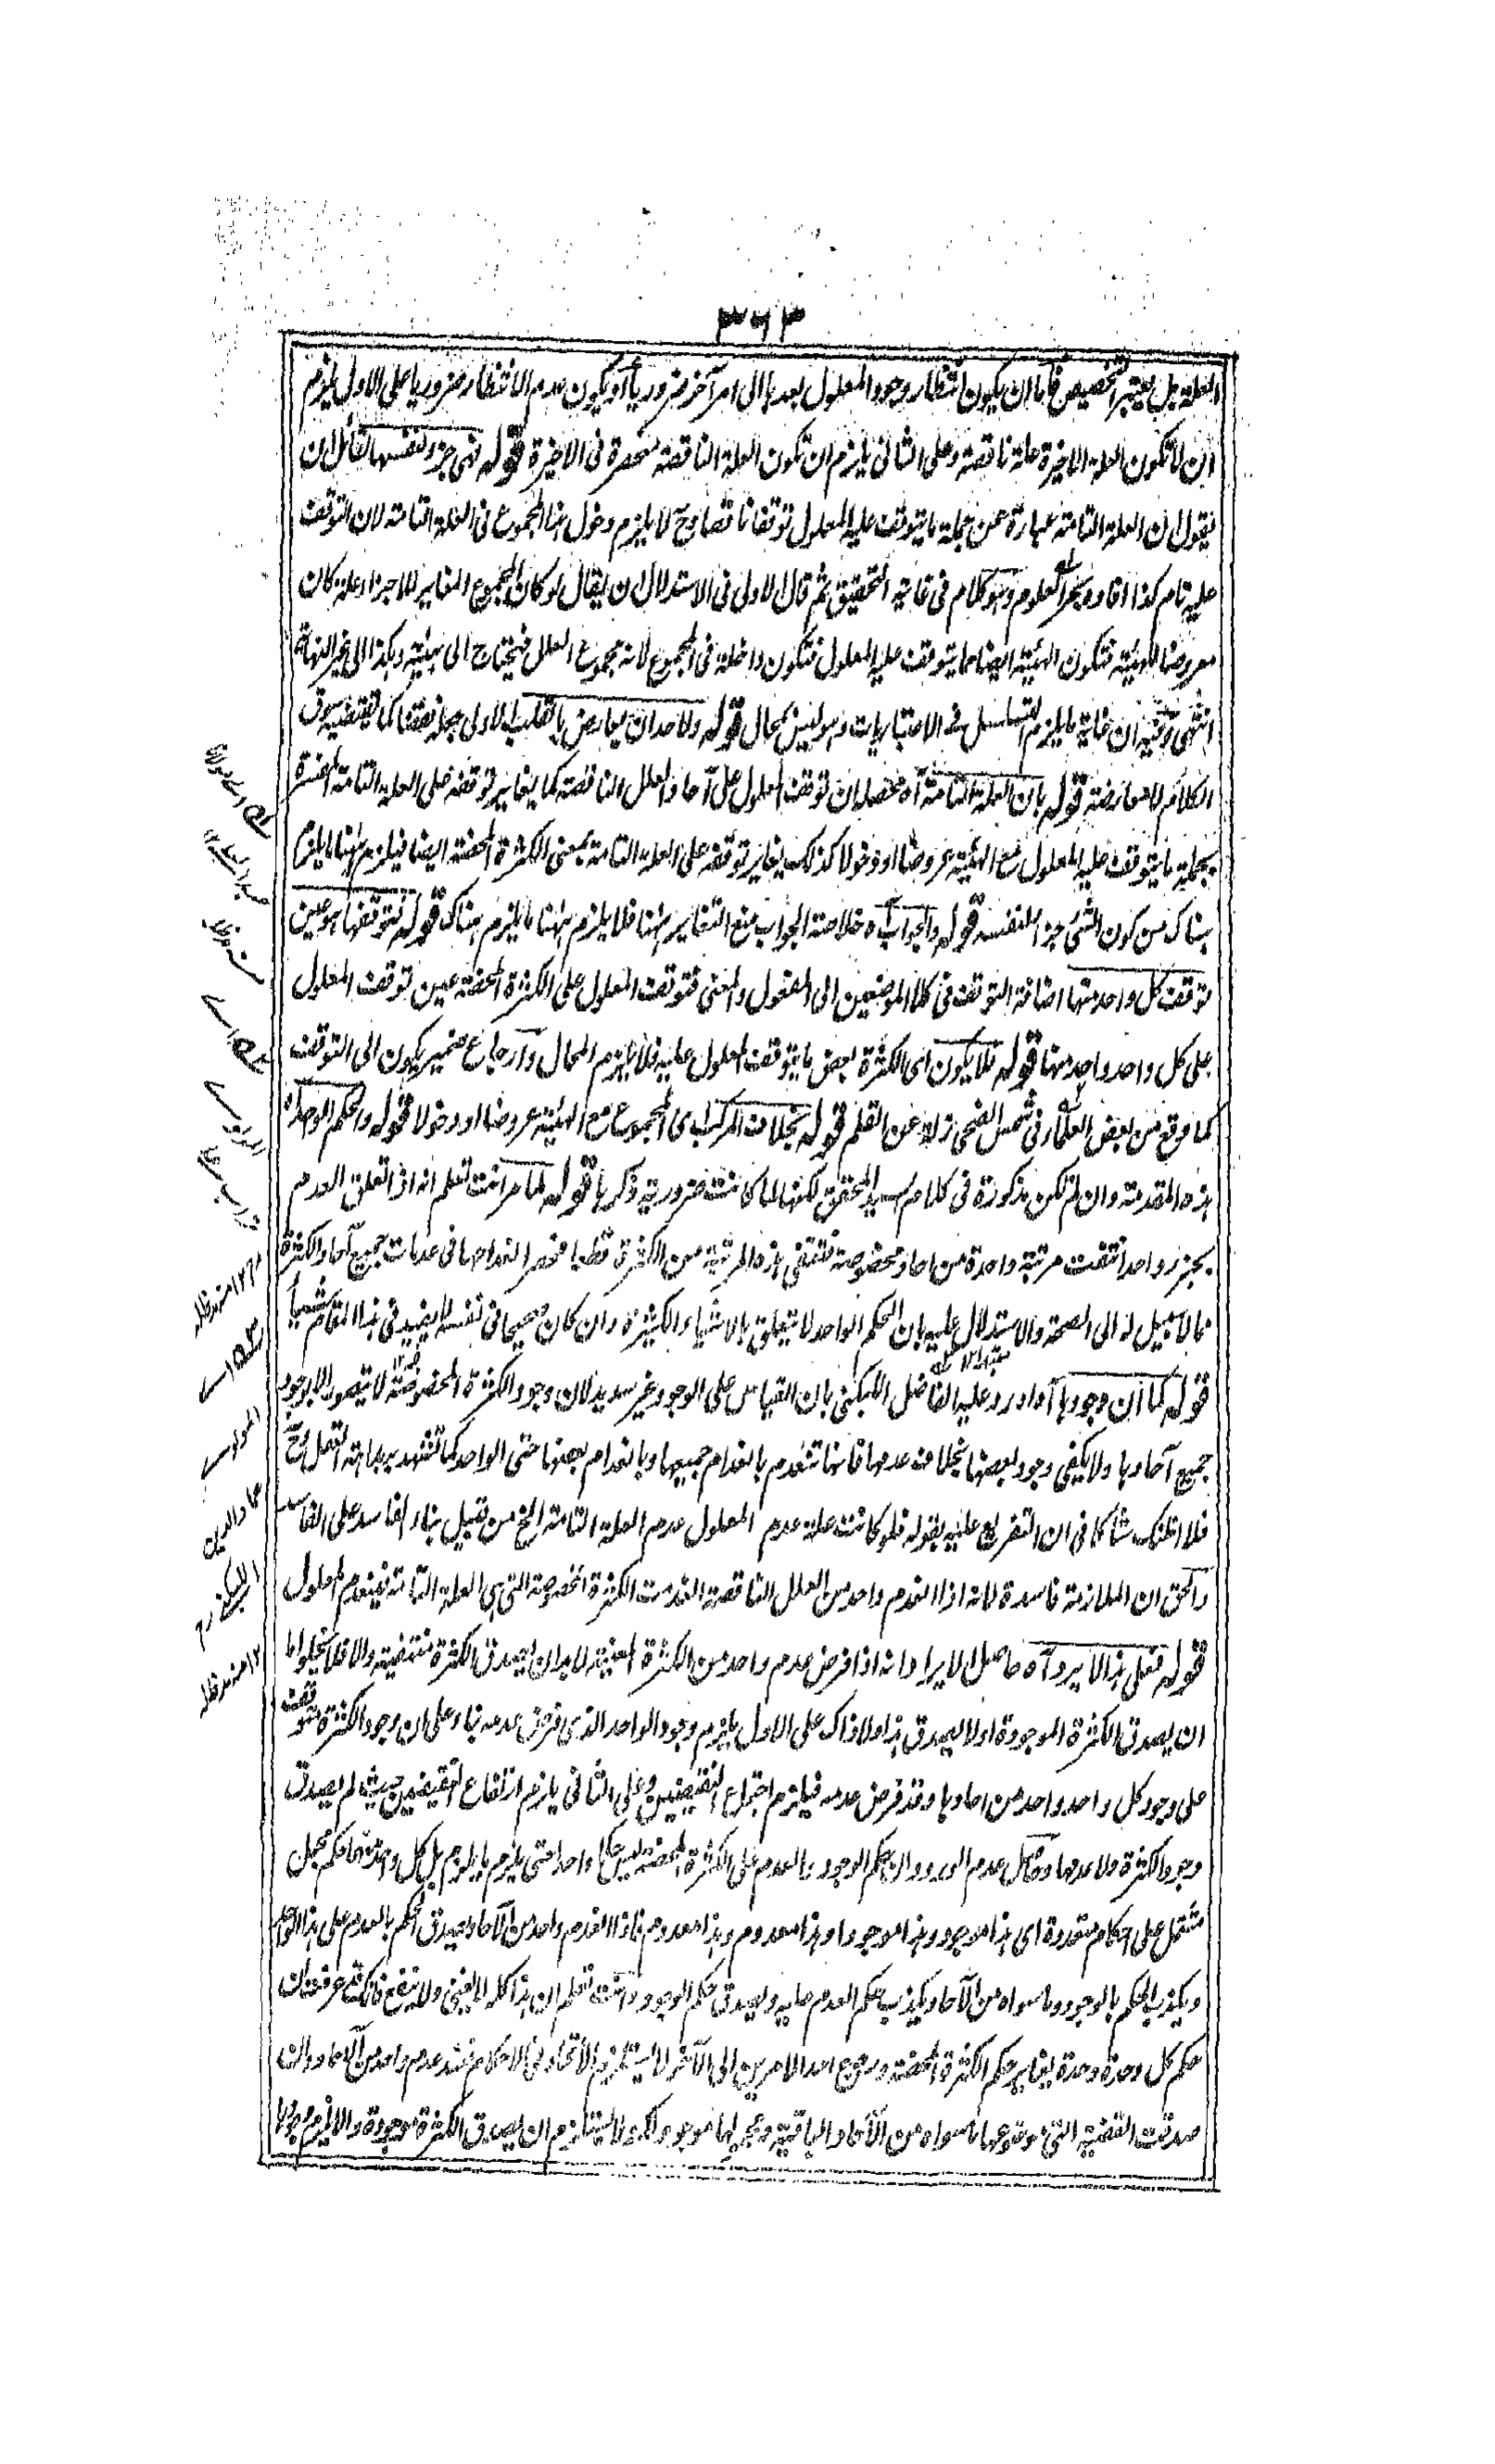 ٣٦٣
العلة بل يعتبر التخصيص فاما ان يكون انتظار وجود المعلول بعدها الى امر آخر ضروريا او يكون عدم الانتظار ضروريا على الاول يلزم
ان لا تكون العلة الاخيرة علة ناقصة وعلى الثانى يلزم ان تكون العلة الناقصة منحصرة فى الاخيرة قوله فهى جزء لنفسها لقائل ان
يقول ان العلة التامة عبارة عن جملة ما يتوقف عليه المعلول توقفا ناقصا وح لا يلزم دخول هذا المجموع فى العلة التامة لان التوقف
عليه تام كذا افاده بحر العلوم وهو كلام فى غاية التحقيق ثم قال الاولى فى الاستدلال ان يقال لو كان المجموع المغاير للاجزاء علة كان
معروضا للهيئة فتكون الهيئة ايضا مما يتوقف عليه المعلول فتكون داخلة فى المجموع لانه مجموع العلل فيحتاج الى هيئة وهكذا الى غير النهاية
انتهى وفيه ان غاية ما يلزم التسلسل فى الاعتباريات وهو ليس بمحال قوله ولاحد ان يعارض بالقلب الاولى جعله نقضا كما يقتضيه سوق
الكلام لا معارضة قوله بان العلة التامة آه محصله ان توقف المعلول على آحاد العلل الناقصة كما يغاير توقفه على العلة التامة المفسرة
بجملة ما يتوقف عليه المعلول مع الهيئة عروضا او دخولا كذلك يغاير توقفه على العلة التامة بمعنى الكثرة المحضة ايضا فيلزم ههنا ما يلزم
هناك من كون الشئ جزءا لنفسه قوله والجواب آه خلاصة الجواب منع التغاير ههنا فلا يلزم ههنا ما يلزم هناك قوله فتوقفها هو عين
توقف كل واحد منها اضافة التوقف فى كلا الموضعين الى المفعول والمعنى فتوقف المعلول على الكثرة المحضة عين توقف المعلول
على كل واحد واحد منها قوله فلا يكون اى الكثرة بعض ما يتوقف المعلول عليه فلا يلزم المحال وارجاع ضمير يكون الى التوقف
كما وقع من بعض العلماء فى شمس الضحى زلة عن القلم قوله بخلاف المركب اى المجموع مع الهيئة عروضا او دخولا قوله والحكم الواحد آه
هذه المقدمة وان لم تكن مذكورة فى كلام السيد المحقق لكنها لما كانت ضرورية ذكرها قوله لما مر انت تعلم انه اذا تعلق العدم
بجزء واحد انتفت مرتبة واحدة من احاد مخصوصة فتنتفى هذه المرتبة من الكثرة قطعا فحصر انعدامها فى عدمات جميع آحاد الكثرة
مما لا سبيل له الى الصحة والاستدلال عليه بان الحكم الواحد لا يتعلق بالاشياء الكثيرة وان كان صحيحا فى نفسه لا يفيد فى هذا المقام شيئا
قوله كما ان وجودها آه اورد عليه الفاضل اللبكنى بان القياس على الوجود غير سديد لان وجود الكثرة المخصوصة لا يتصور الا بوجود
جميع آحادها ولا يكفى وجود بعضها بخلاف عدمها فانها تنعدم بانعدام جميعها وبانعدام بعضها حتى الواحد كما تشهد به بداهة العقل وح
فلا اظنك شاكا فى ان التفريع عليه بقوله فلو كانت علة عدم المعلول عدم العلة التامة الخ من قبيل بناء الفاسد على الفاسد
والحق ان الملازمة فاسدة لانه اذا انعدم واحد من العلل الناقصة انعدمت الكثرة المخصوصة التى هى العلة التامة فينعدم المعلول
قوله فعلى هذا لا يرد آه حاصل الايراد انه اذا فرض عدم واحد من الكثرة المعينة لا بد ان يصدق الكثرة منتفية والا فلا يخلو اما
ان يصدق الكثرة الموجودة او لا يصدق هذا ولا ذاك على الاول يلزم وجود الواحد الذى فرض عدمه بناء على ان وجود الكثرة متوقف
على وجود كل واحد واحد من احادها وقد فرض عدمه فيلزم اجتماع النقيضين وعلى الثانى يلزم ارتفاع النقيضين حيث لم يصدق
وجود الكثرة ولا عدمها وحاصل عدم الورود ان حكم الوجود والعدم على الكثرة المحضة ليس حكما واحدا حتى يلزم ما يلزم بل كل واحد منهما حكم مجمل
مشتمل على احكام متعددة اى هذا موجود وهذا موجود او هذا معدوم وهذا معدوم فاذا انعدم واحد من الآحاد يصدق الحكم بالعدم على هذا الواحد
ويكذب الحكم بالوجود وما سواه من الآحاد يكذب حكم العدم عليه ويصدق حكم الوجود وانت تعلم ان هذا كله لا يغنى ولا ينفع فانك قد عرفت ان
حكم كل وحدة وحدة يغاير حكم الكثرة المحضة ورجوع احد الامرين الى الآخر لا يستلزم الاتحاد فى الاحكام فعند عدم واحد من الآحاد وان
صدقت القضية التى موضوعها ما سواه من الآحاد الباقية ومحمولها موجود لكنه لا يستلزم ان يصدق الكثرة موجودة والا لزم وجودها